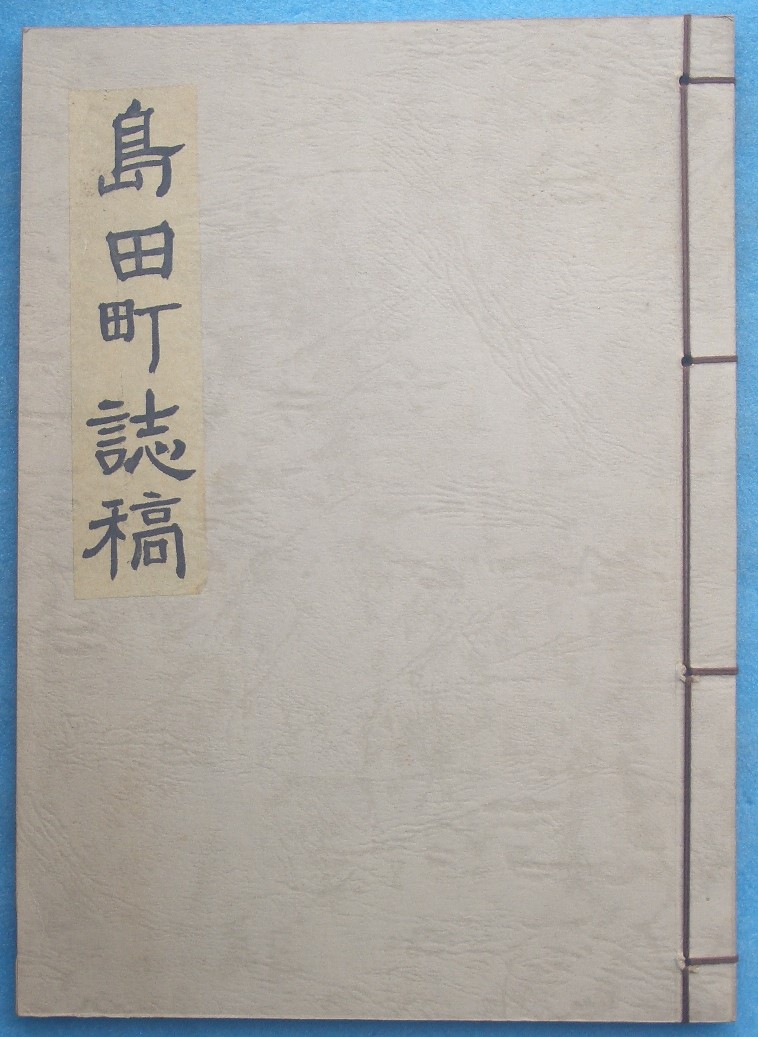 島田町誌稿